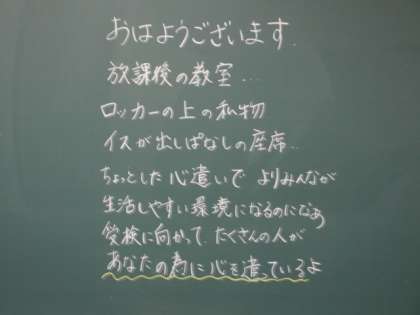 おはようございます.
放課後の教室...
ロッカーの上の私物
イスが出しぱなしの座席...
ちょっとした心遣いで よりみんなが
生活しやすい環境になるのになぁ
受検に向かって.たくさんの人が
あなたの為に心を遣っているよ